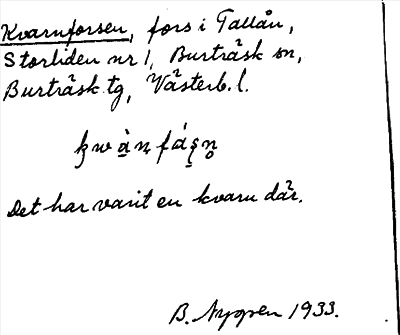 Kvarnforsen, fors i Tallån,
Storliden nr 1, Burträsk sn,
Burträsk tg, Västerb. l.
Det har varit en kvarn där.
B. Nygren 1933.